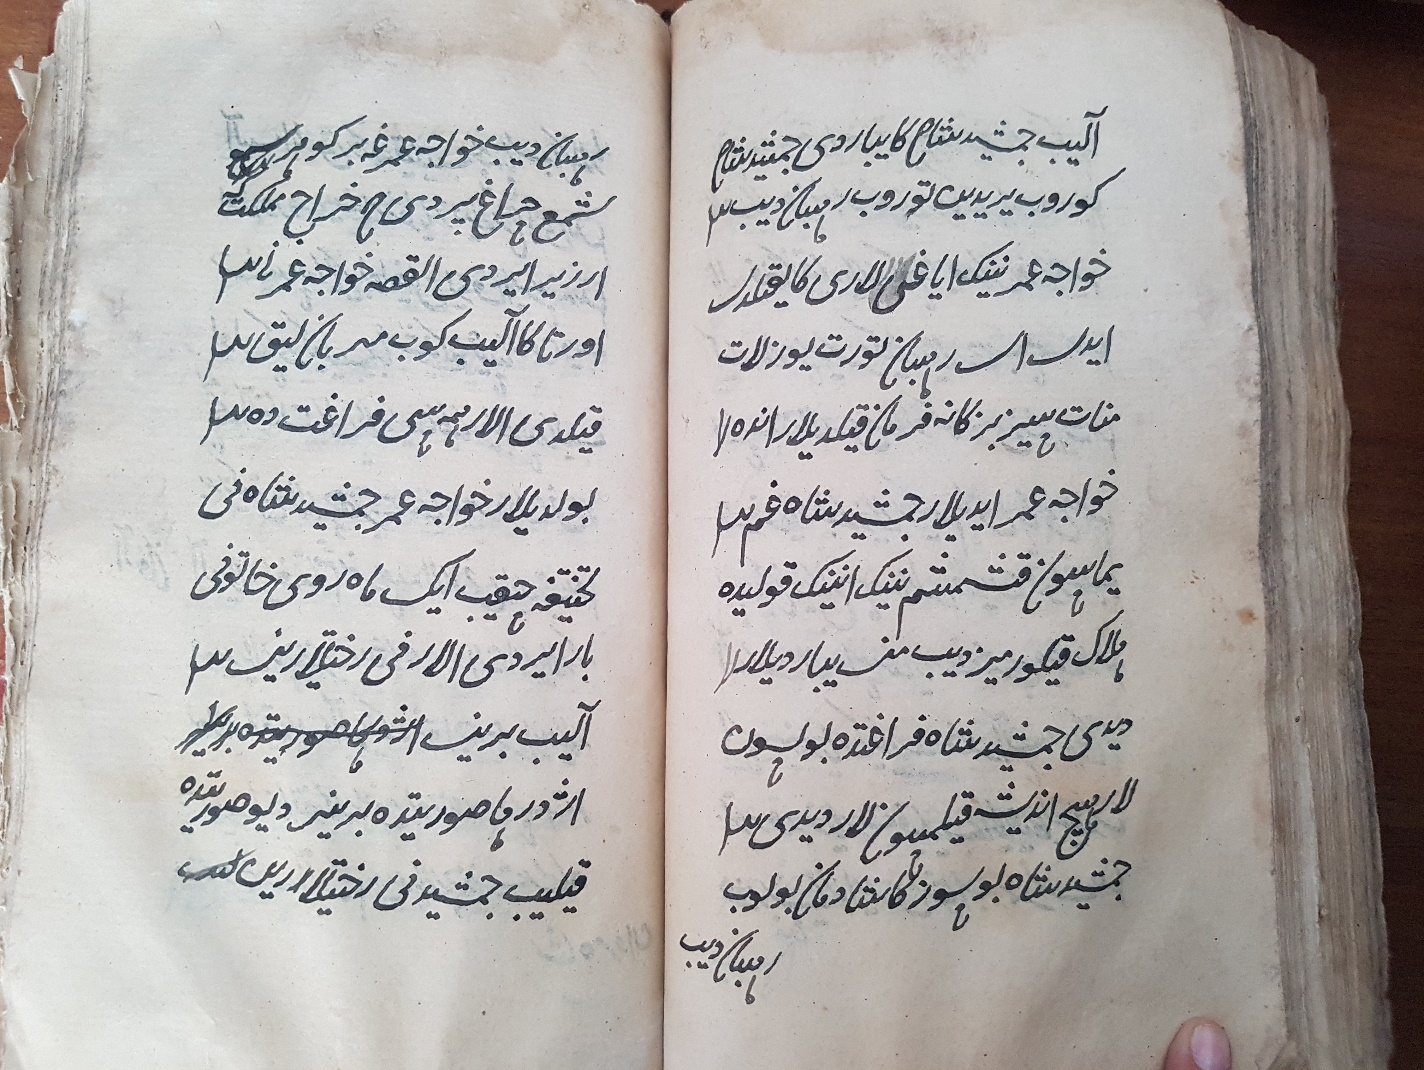 آلیب جمشید شاه کا یباردی جمشید شاه
کوروب یریدین توروب رهبان دیب
خواجه عمر ننیک ایاغی لاری کا ییقیلدی
رهبان تورت یوز لات
منات سیز بزکانه فرمان قیلدیلار انده
خواجه عمر ایدیلار جمشید شاه غم
یماسون ننیک اننیک قولیده
هلاک قیلورمیز دیب یباردیلار
دیدی جمشید شاه فراغتده بولسون
لار هیچ اندیشه قیلمسون لار دیدی
جمشید شاه بو سوزکا شادمان بولوب
رهبان دیب
رهبان دیب خواجه عمرغه بر کوهر
شمع چراغ بیردی خراج مملکت
ارزیر ایردی القصه خواجه عمر نی
اورتا کا آلیب کوب مهربان لیق
قیلدی الار همه سی فراغت ده
بولدیلار خواجه عمر جمشید شاه نی
تختیغه چیقیب ایک ماه روی خاتونی
بار ایردی الارنی رختلارین
آلیب برین
اژدرها صورتیده برین دیو صورتیده
قیلیب جمشید نی رختلارین